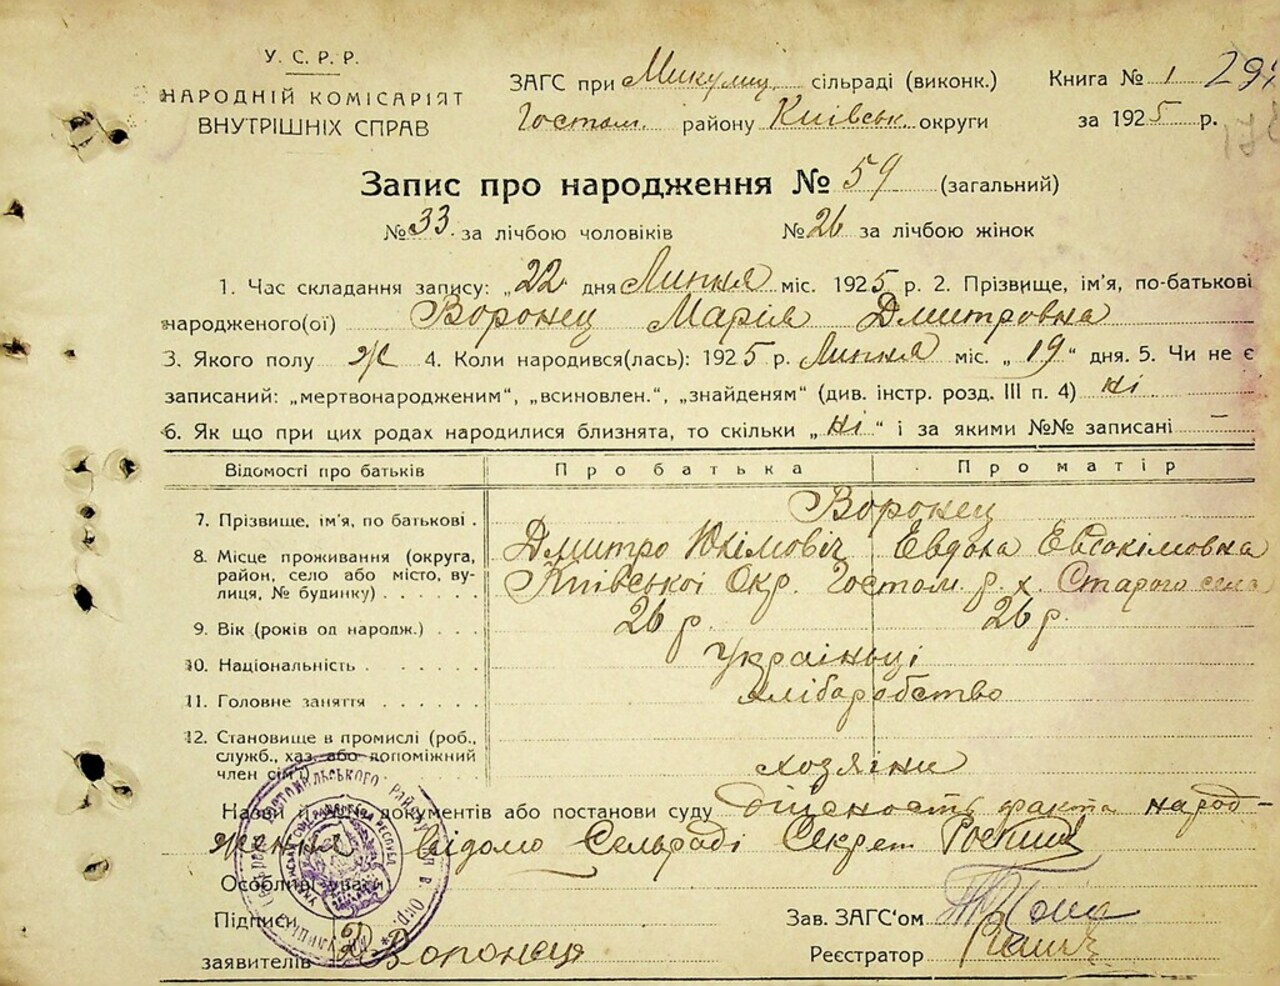 У. С. Р. Р.
НАРОДНІЙ КОМІСАРІЯТ
ВНУТРІШНІХ СПРАВ
ЗАГС при Микулиц. сільраді (виконк.)
Гостом. району Київськ. округи
Книга № 1 297
за 1925 р.
Запис про народження № 59 (загальний)
№ 33 за лічбою чоловіків № 26 за лічбою жінок
1. Час складання запису: „22 дня Липня міс. 1925 р. 2. Прізвище, ім'я, по-батькові
народженого(ої) Воронец Марія Дмитровна
3. Якого полу Ж 4. Коли народився(лась): 1925 р. Липня міс. „19“ дня. 5. Чи не є
записаний: „мертвонародженим“, „всиновлен.“, „знайденям“ (див. інстр. розд. III п. 4) ні
6. Як що при цих родах народилися близнята, то скільки „ні“ і за якими №№ записані —
Відомості про батьків Про батька Про матір
7. Прізвище, ім'я, по батькові . Воронец
Дмитро Юхімовіч Евдоха Евдокімовна
8. Місце проживання (округа, район, село або місто, вулиця, № будинку) . . . . . Київської Окр. Гостом. р. х. Старого села
9. Вік (років од народж.) . . . 26 р. 26 р.
10. Національність . . . . . . Украіньці
11. Головне заняття . . . . . . хліборобство
12. Становище в промислі (роб., служб., хаз. або допоміжний член сім'ї) хозяіни
Назви й № документів або постанови суду Дійсность факта народ-
ження відомо Сельраді Секрет
Особливі уваги
Підписи
заявителів Д Воронец
Зав. ЗАГС'ом
Реєстратор